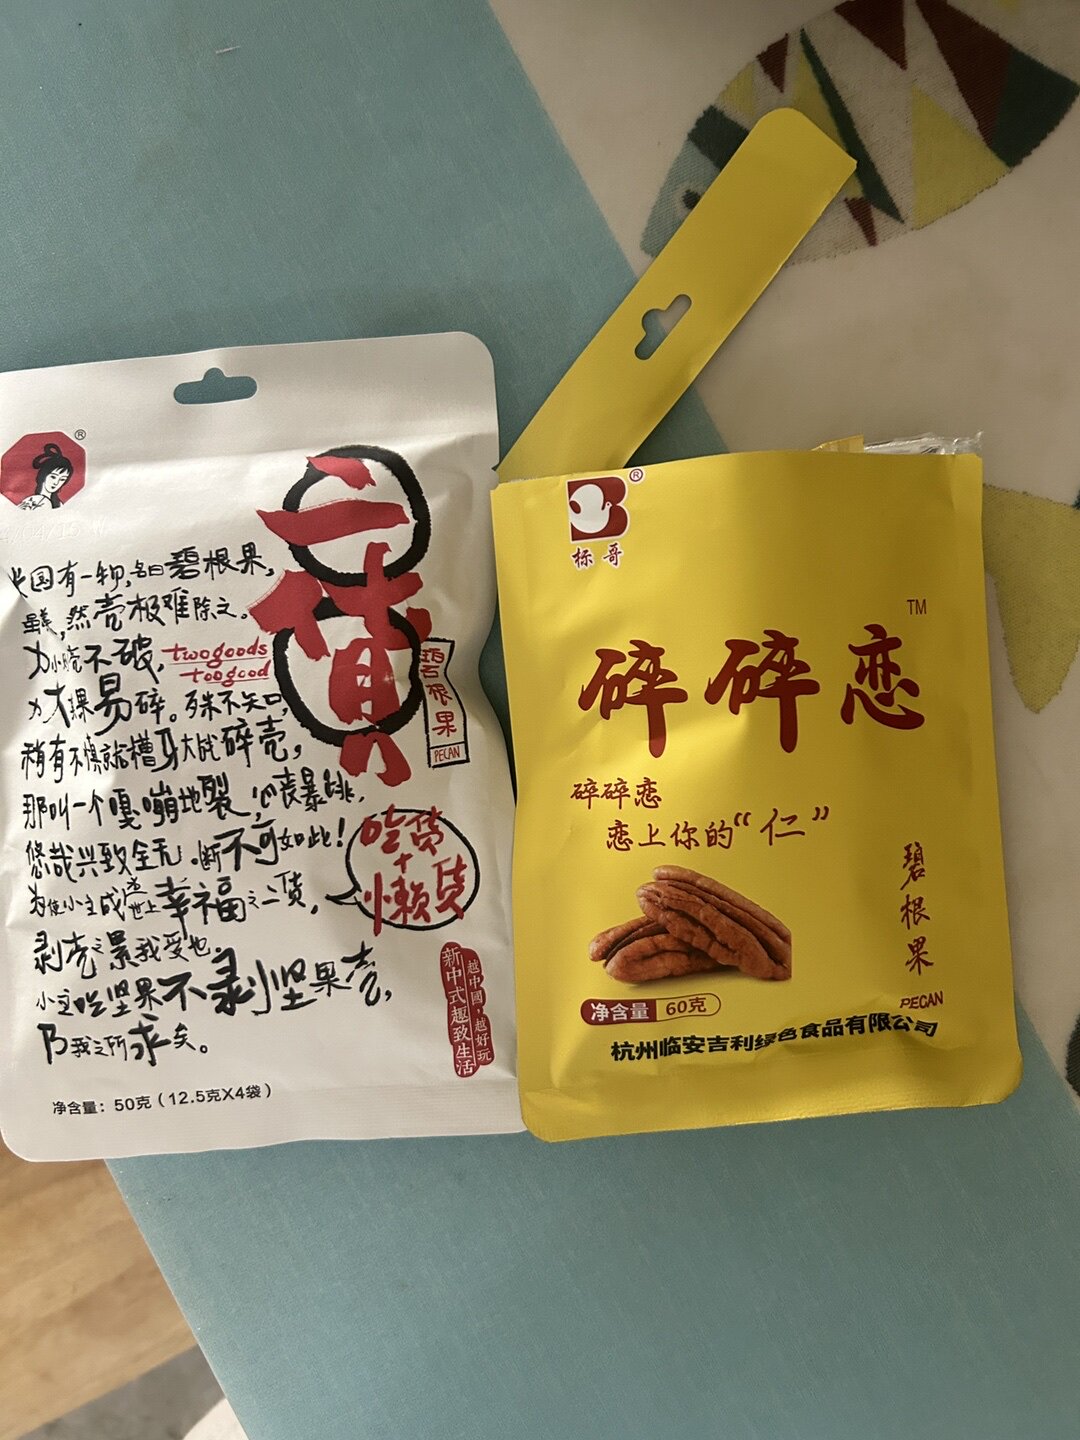 二货
碧根果
PECAN
中国有一物,名曰碧根果,
虽美,然壳极难除之。
力小壳不破,
twogoods
toogood
力大裸易碎。殊不知,
稍有不慎就槽牙大战碎壳,
那叫一个嘎嘣地裂,心丧暴跳,
悠哉兴致全无,断不可如此!
为使小主成盛世上幸福之二货,
剥壳之累我受也。
小主吃坚果不剥坚果壳,
乃我之所求矣。
吃货
+
懒货
越中國,越好玩
新中式趣致生活
净含量:50克(12.5克X4袋)
标哥
碎碎恋™
碎碎恋
恋上你的“仁”
碧根果
PECAN
净含量 60克
杭州临安吉利绿色食品有限公司